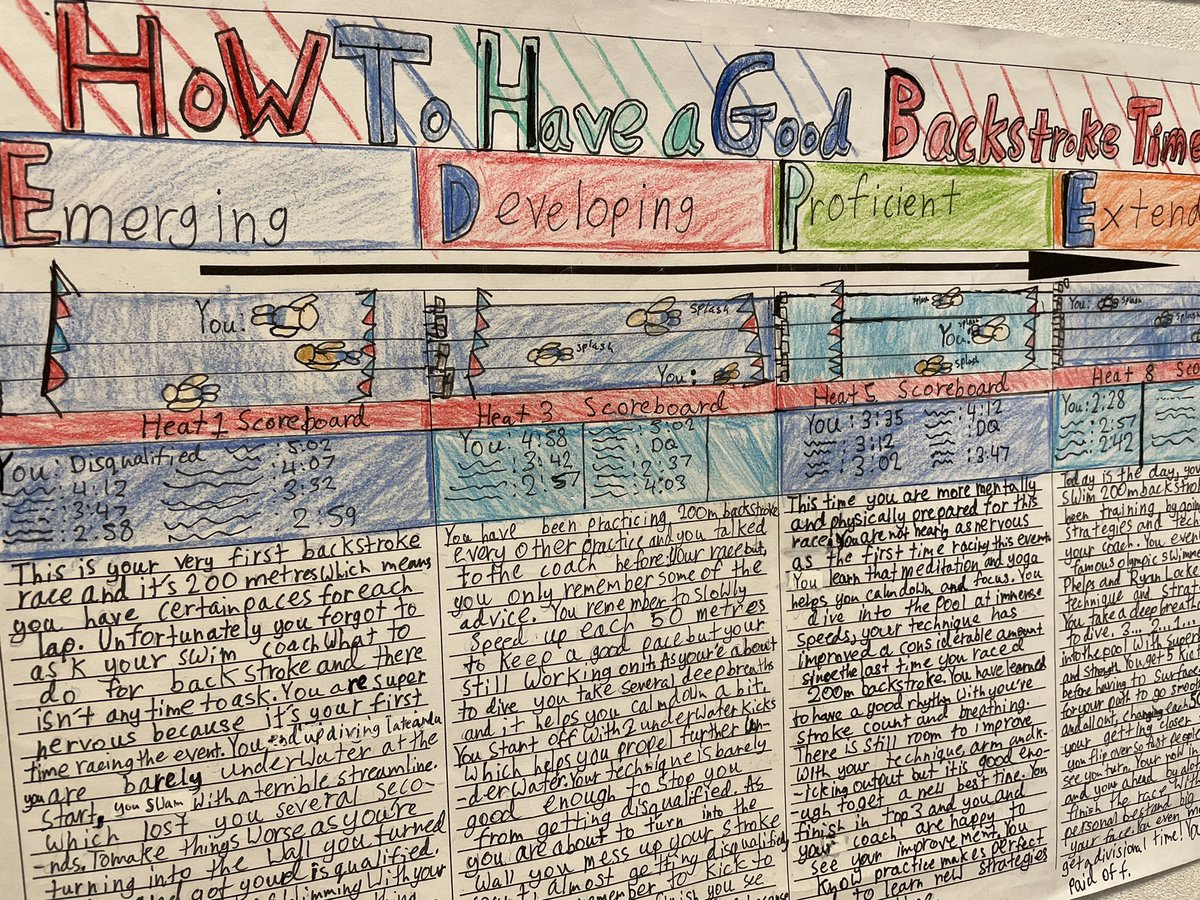 How To Have a Good Backstroke Time
Emerging
Developing
Proficient
You:
splash
splash
You:
splash
splash
You:
splash
You:
splash
splash
Heat 1 Scoreboard
You: Disqualified
4:12
3:47
2:58
5:02
4:07
3:32
2:59
This is your very first backstroke
race and it's 200 metres which means
you have certain paces for each
lap. Unfortunately you forgot to
ask your swim coach what to
do for backstroke and there
isn't any time to ask. You are super
nervous because it's your first
time racing the event. You end up diving late and
you are barely underwater at the
start, you swam with a terrible streamline
which lost you several seco-
-nds. To make things worse as you're
turning into the wall you turned
got your disqualified.
swimming with your
Heat 3 Scoreboard
You: 4:58
3:42
2:57
5:02
DQ
2:37
4:03
You have been practicing 200m backstroke
every other practice and you talked
to the coach before your race but,
you only remember some of the
advice. You remember to slowly
speed up each 50 metres
to keep a good pace but your
still working on it. As your'e about
to dive you take several deep breaths
and it helps you calm down a bit.
You start off with 2 underwater kicks
which helps you propel further un-
-derwater. Your technique is barely
good enough to stop you
from getting disqualified. As
you are about to turn into the
wall you mess up your stroke
almost getting disqualified,
remember to kick to
finish you see
Heat 5 Scoreboard
You: 3:35
3:12
3:02
4:12
DQ
3:47
This time you are more mentally
and physically prepared for this
race. You are not nearly as nervous
as the first time racing this event.
You learn that meditation and yoga
helps you calm down and focus. You
dive into the pool at immense
speeds, your technique has
improved a considerable amount
since the last time you raced
200m backstroke. You have learned
to have a good rhythm with you're
stroke count and breathing.
There is still room to improve
with your technique, arm and k-
-icking output but it is good eno-
-ugh to get a new best time. You
finish in top 3 and you and
your coach are happy to
see your improvement. You
know practice makes perfect
to learn new strategies
Heat 8
You: 2:28
2:57
2:42
Today is the day, you
swim 200m backstrok
been training by going
strategies and tec
your coach. You even
famous olympic swimme
Phelps and Ryan
technique and strat
You take a deep breath
to dive. 3... 2... 1...
into the pool with super
and strength. You get 5 kic
before having to surface
for your path to go smoo
and all out,
your getting closer
you flip over so fast people
see you turn. Your now in
and you ahead by a lot
finish the race with
personal best and big
your face. You even
get a divisional time!
paid off.